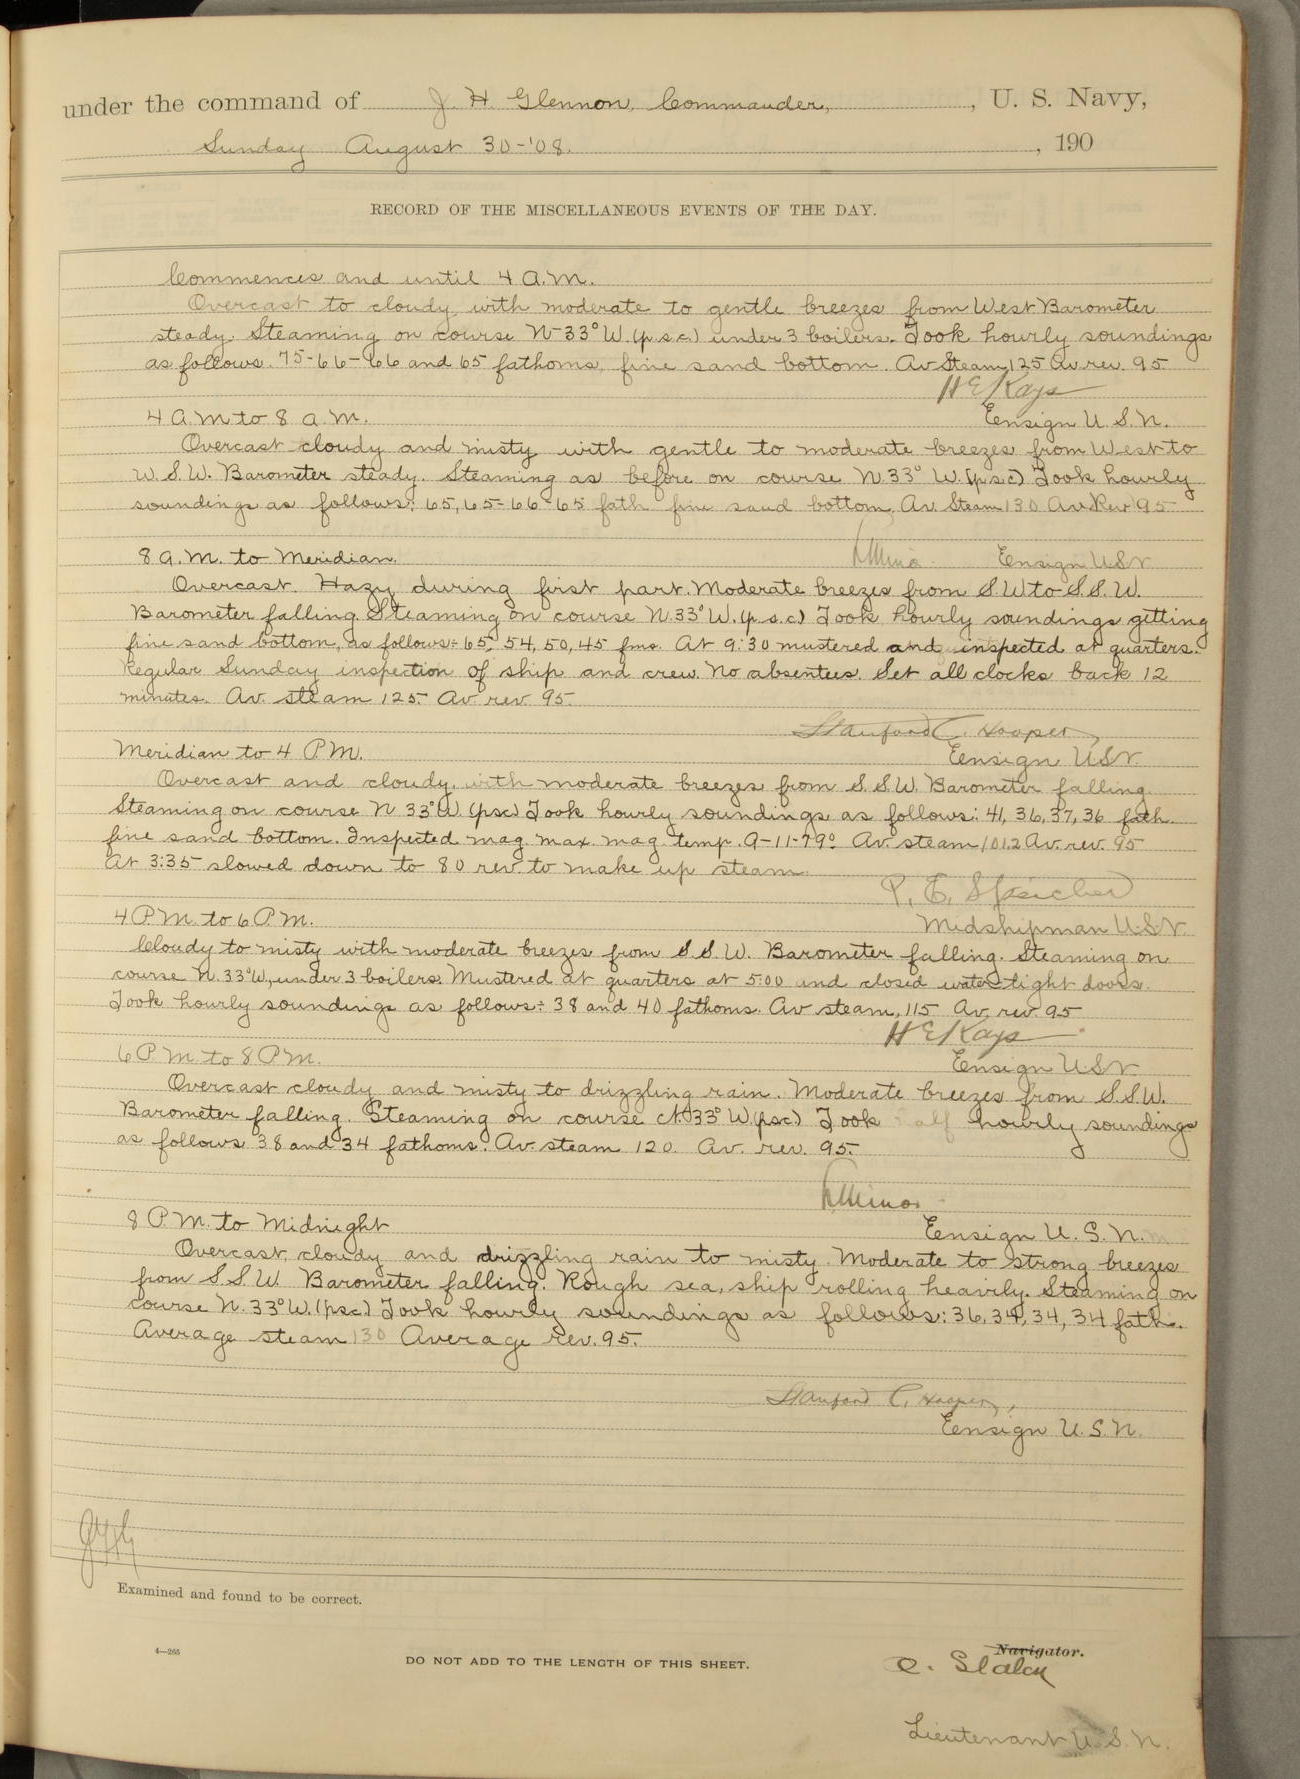 under the command of J. H. Glennon, Commander, , U. S. Navy,
Sunday August 30-'08. , 190
RECORD OF THE MISCELLANEOUS EVENTS OF THE DAY.
Commences and until 4 A.M.
Overcast to cloudy with moderate to gentle breezes from West Barometer
steady. Steaming on course N-33° W. (p.s.c.) under 3 boilers. Took hourly soundings
as follows. 75-66-66 and 65 fathoms, fine sand bottom. Av Steam 125 Av. rev. 95
H E Kays
4 A.M to 8 a.m. Ensign U.S.N.
Overcast cloudy and misty with gentle to moderate breezes from West to
W.S.W. Barometer steady. Steaming as before on course N.33° W. (p.s.c) Took hourly
soundings as follows: 65, 65-66-65 fath fine sand bottom. Av. Steam 130 Av Rev 95
8 A.M. to Meridian. Ensign USN
Overcast. Hazy during first part. Moderate breezes from S.W to S.S.W.
Barometer falling. Steaming on course N.33° W. (p.s.c.) Took hourly soundings getting
fine sand bottom, as follows:- 65, 54, 50, 45 fms. At 9:30 mustered and inspected at quarters.
Regular Sunday inspection of ship and crew. No absentees. Set all clocks back 12
minutes. Av. steam 125. Av rev. 95.
Stanford C. Hooper,
Meridian to 4 P.M. Ensign USN.
Overcast and cloudy, with moderate breezes from S.S.W. Barometer falling.
Steaming on course N 33° W (psc) Took hourly soundings as follows: 41, 36, 37, 36 fath.
fine sand bottom. Inspected mag. max. mag. temp. A-11-79° Av. steam 101.2 Av. rev. 95
At 3:35 slowed down to 80 rev. to make up steam.
P. E. Speicher
4 P.M. to 6 P.M. Midshipman U.S.N
Cloudy to misty with moderate breezes from S.S.W. Barometer falling. Steaming on
course N.33° W., under 3 boilers. Mustered at quarters at 5:00 and closed water-tight doors.
Took hourly soundings as follows:- 38 and 40 fathoms. Av steam, 115 Av. rev. 95
H E Kays
6 P.M. to 8 P.M. Ensign USN.
Overcast cloudy and misty to drizzling rain. Moderate breezes from S.S.W.
Barometer falling. Steaming on course N.33° W (psc.) Took half hourly soundings
as follows 38 and 34 fathoms. Av. steam 120. Av. rev. 95.
8 P.M. to Midnight Ensign U.S.N.
Overcast, cloudy and drizzling rain to misty. Moderate to strong breezes
from S.S.W. Barometer falling. Rough sea, ship rolling heavily. Steaming on
course N. 33° W. (psc.) Took hourly soundings as follows: 36, 34, 34, 34 fath.
Average steam 130 Average rev. 95.
Stanford C. Hooper,
Ensign U.S.N.
JHG
Examined and found to be correct.
4—265
DO NOT ADD TO THE LENGTH OF THIS SHEET.
Navigator.
Lieutenant U.S.N.